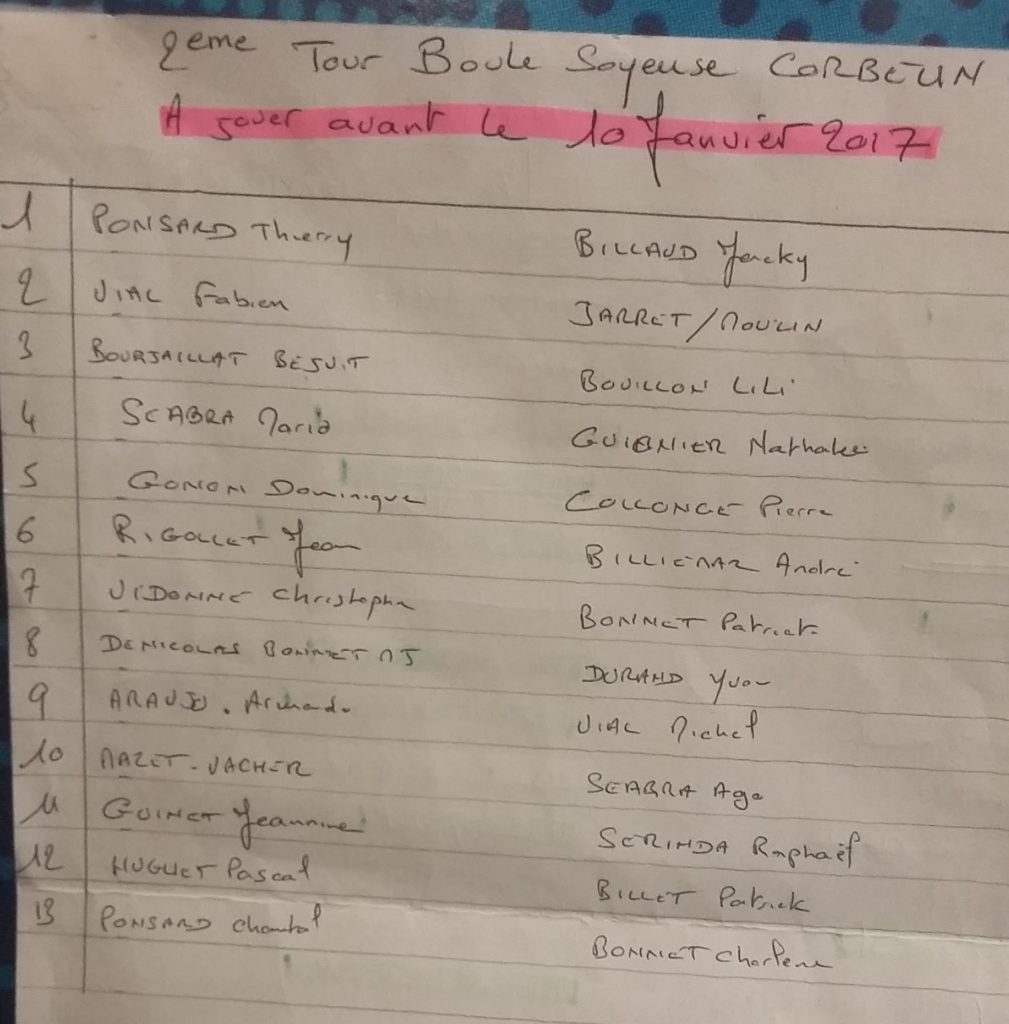 2eme Tour Boule Soyeuse CORBELIN
A jouer avant le 10 Janvier 2017
1 PONSARD Thierry BILLAUD Jacky
2 VIAL Fabien JARRET/MOULIN
3 BOURJAILLAT BESUIT BOUILLON LiLi
4 SEABRA Mario GUIBNIER Nathalie
5 GONON Dominique COLLONGE Pierre
6 RIGOLLET Jean BILLIEMAZ André
7 VIDONNE Christophe BONNET Patrick
8 DENICOLAS BONNET MJ DURAND Yvon
9 ARAUJO. Armando VIAL Michel
10 MAZET-VACHER SEABRA Ago
11 GUINET Jeannine SERINDA Raphaël
12 HUGUET Pascal BILLET Patrick
13 PONSARD Chantal BONNET Charlene